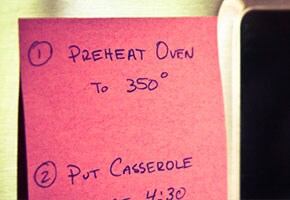 ① PREHEAT OVEN
TO 350°
② PUT CASSEROLE
4:30